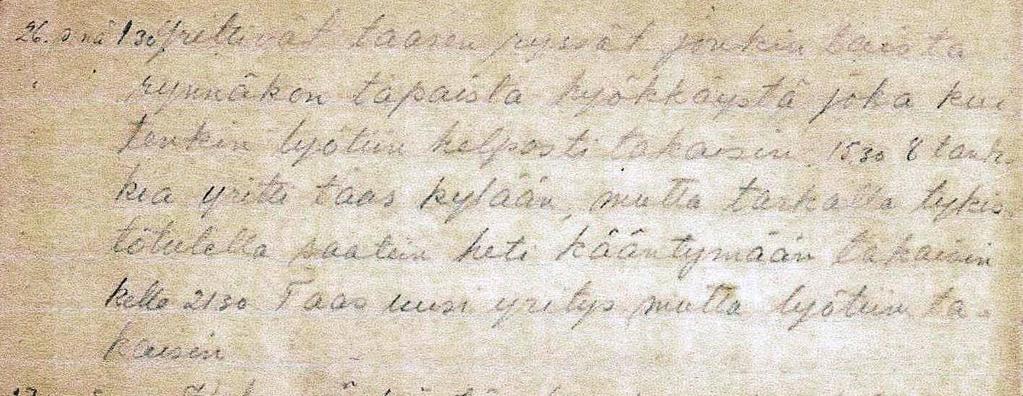 26. s nä 130 yrittivät taasen ryssät jonkin laista
rynnäkön tapaista hyökkäystä joka kui
tenkin lyötiin helposti takaisin. 1530 8 tank-
kia yritti taas kylään, mutta tarkalla tykis-
tötulella saatiin heti kääntymään takaisin
kello 2130 Taas uusi yritys mutta lyötiin ta-
kaisin